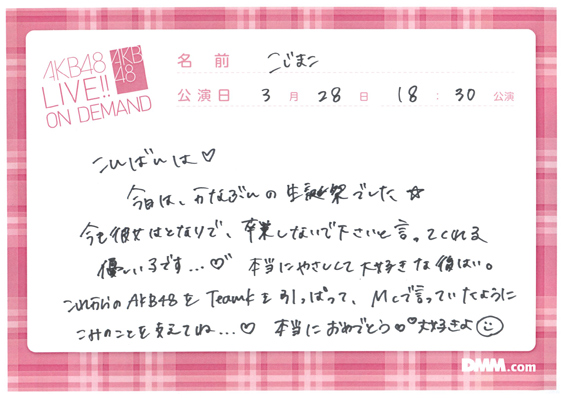 AKB48
LIVE!!
ON DEMAND
AKB
48
名前 こじまこ
公演日 3月28日 18:30公演
こんばんは♡
今日は、かなぶんの生誕祭でした☆
今も彼女はとなりで、卒業しないで下さいと言ってくれる
優しい子です...♡ 本当にやさしくて大好きな後はい。
これからのAKB48をTeamKを引っぱって、MCで言っていたように
こみのことを支えてね...♡ 本当におめでとう♡大好きよ
DMM.com